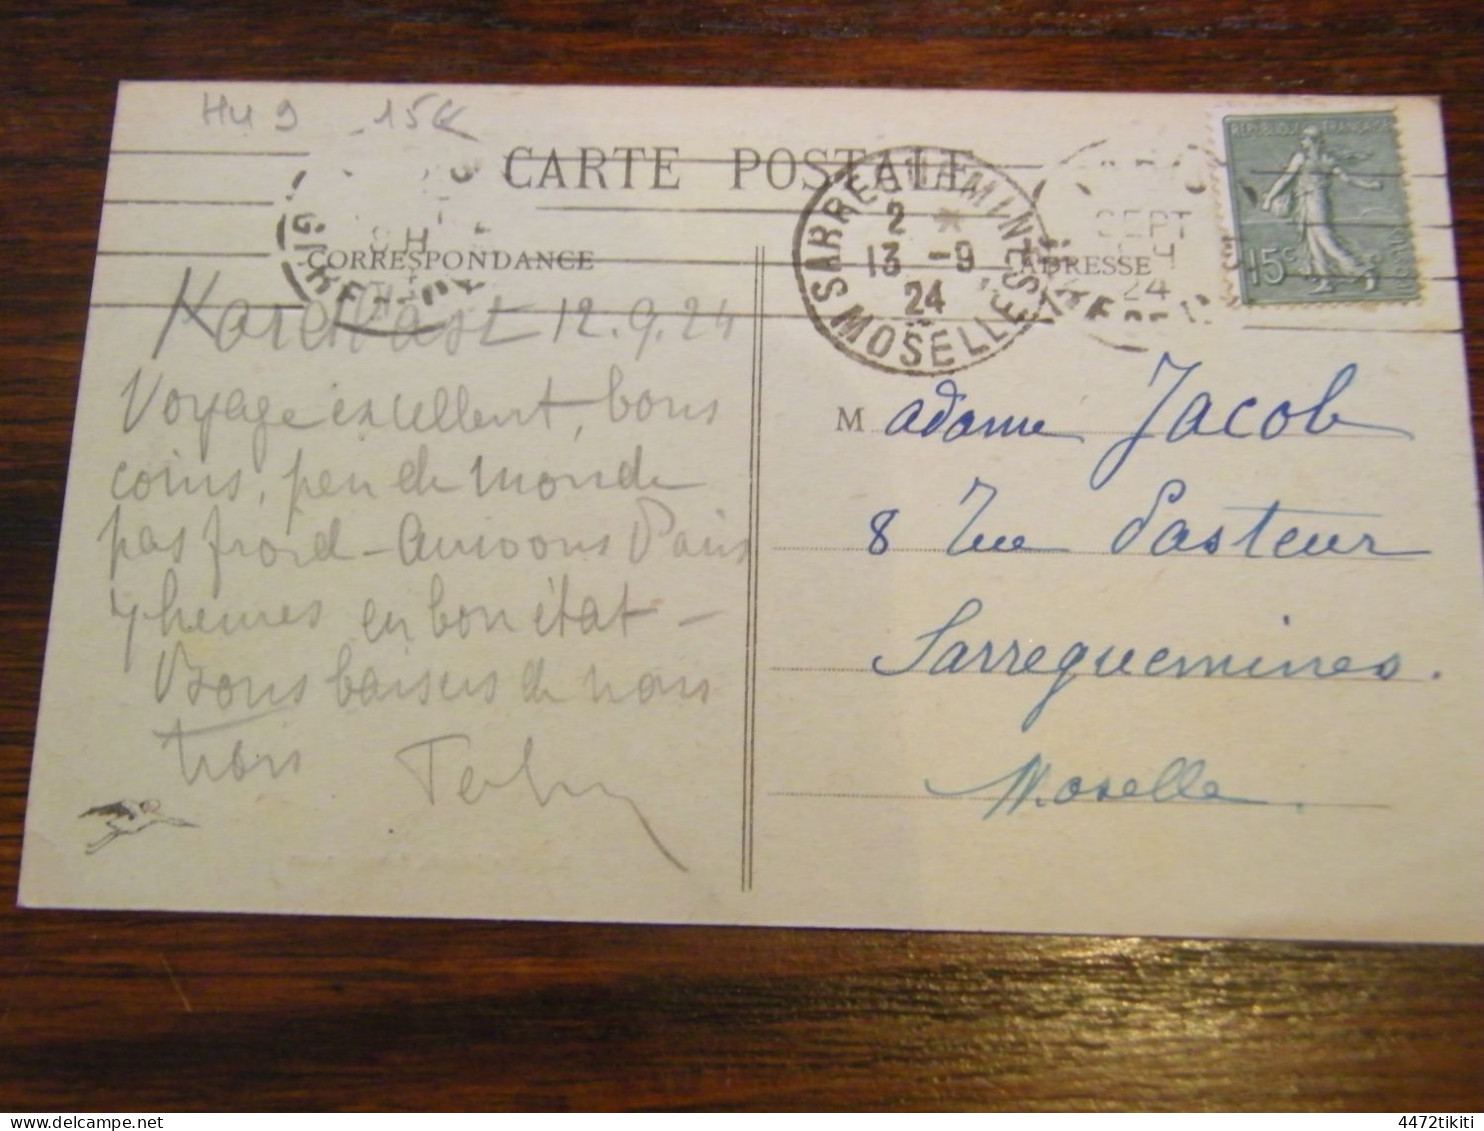 Hu 9 15€
CARTE POSTALE
CORRESPONDANCE
ADRESSE
SARREGUEMINES
2 *
13 -9
24
MOSELLE
SEPT
24
REPUBLIQUE FRANCAISE
15c
12.9.24
Voyage excellent, bons
coins, peu de monde
pas froid - Arrivons Paris
7 heures en bon état -
Bons baisers de nous
trois
M adame Jacob
8 rue Pasteur
Sarreguemines.
Moselle.
4472tikiti